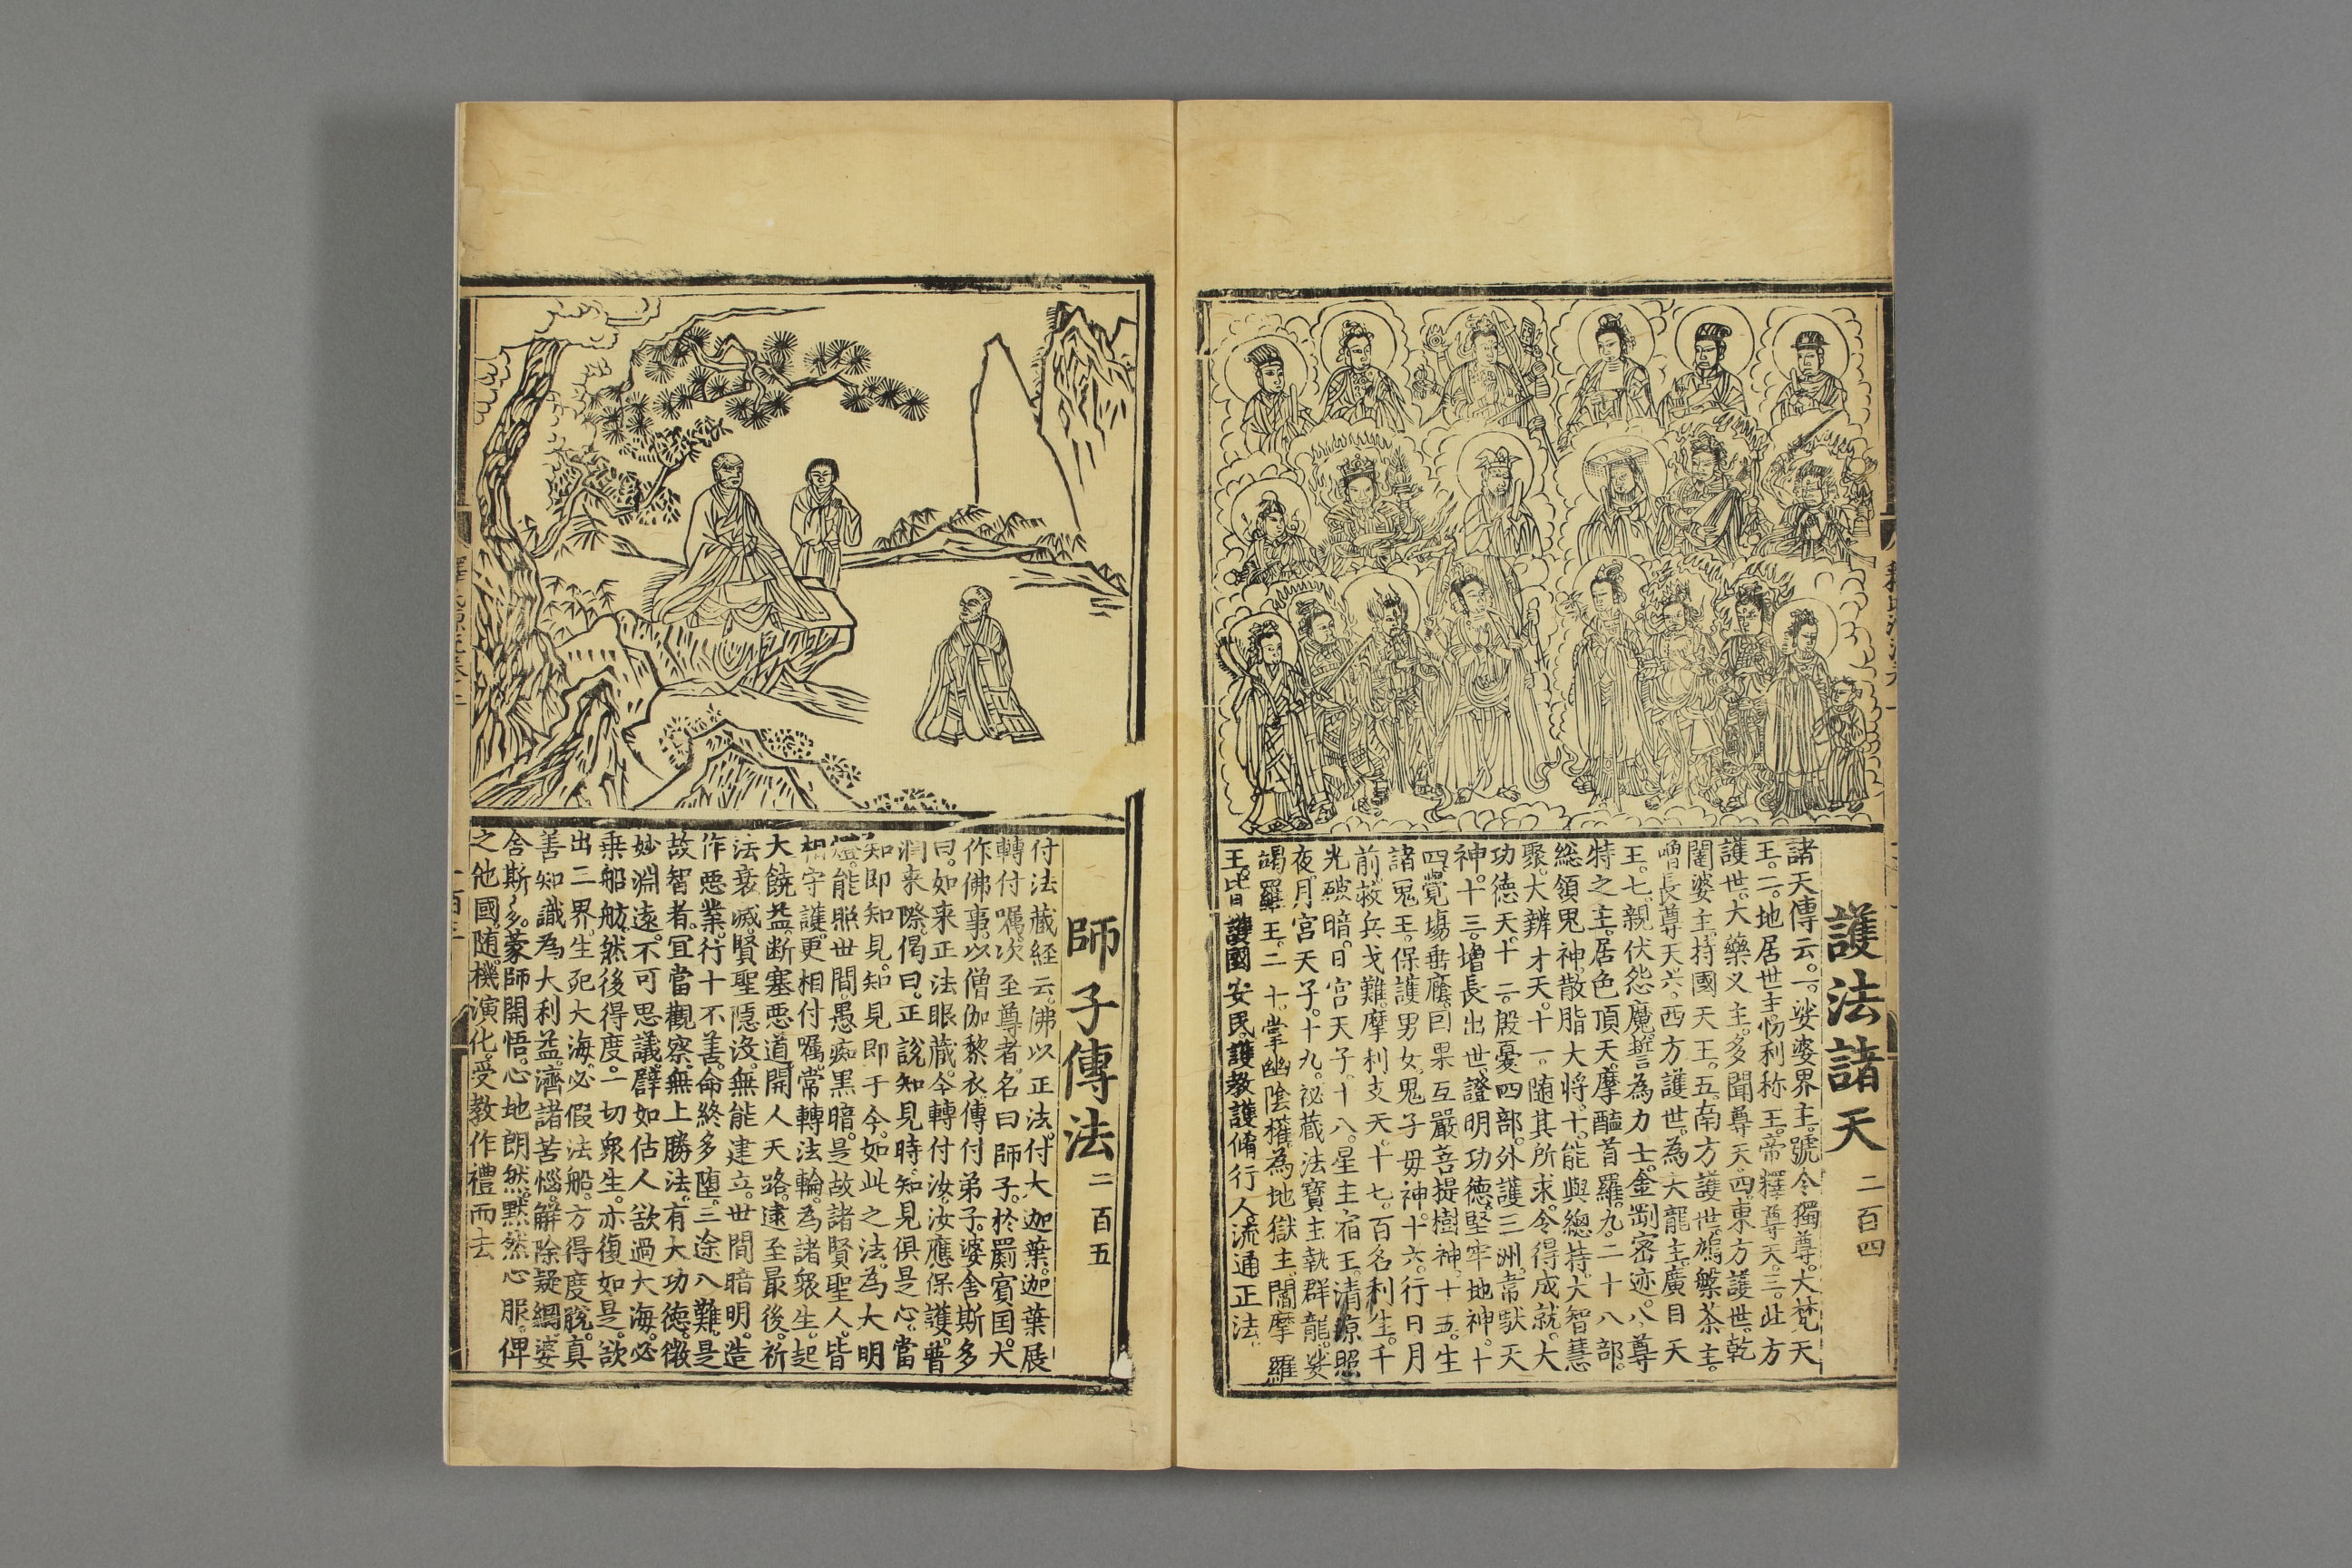 護法諸天 二百四
諸天傳云。一。娑婆界主。號令獨尊。大梵天
王。二。地居世主。忉利称王。帝釋尊天。三。此方
護世。大藥叉主。多聞尊天。四。東方護世。乾
闥婆主。持國天王。五。南方護世。鳩槃茶主。
增長尊天。六。西方護世。為大龍主。廣目天
王。七。親伏怨魔。誓為力士。金剛密迹。八。尊
特之主。居色頂天。摩醯首羅。九。二十八部。
総領鬼神。散脂大将。十。能與總持。大智慧
聚。大辨才天。十一。随其所求。令得成就。大
功德天。十二。殷憂四部。外護三洲。韋馱天
神。十三。增長出世。證明功德。堅牢地神。十
四。覺場垂廕。因果互嚴。菩提樹神。十五。生
諸鬼王。保護男女。鬼子毋神。十六。行日月
前。救兵戈難。摩利支天。十七。百名利生。千
光破暗。日宫天子。十八。星主宿王。清凉照
夜。月宫天子。十九。祕蔵法寶。主執群龍。娑
竭羅王。二十。掌幽陰權。為地獄主。閻摩羅
王。皆護國安民。護教護脩行人。流通正法。
師子傳法 二百五
付法藏経云。佛以正法。付大迦葉。迦葉展
轉付嘱。次至尊者。名曰師子。於罽賓国。大
作佛事。以僧伽黎衣。傳付弟子。婆舍斯多
曰。如来正法眼蔵。今轉付汝。汝應保護。普
潤来際。偈曰。正說知見時。知見俱是心。當
知即知見。知見即于今。如此之法。為大明
燈。能照世間。愚痴黑暗。是故諸賢聖人。皆
相守護。更相付嘱。常轉法輪。為諸衆生。起
大饒益。断塞悪道。開人天路。逮至最後。祈
法衰滅。賢聖隠没。無能建立。世間暗明。造
作悪業。行十不善。命終多堕。三途八難。是
故智者。宜當觀察。無上勝法。有大功德。微
妙淵遠。不可思議。譬如估人。欲過大海。必
乗船舫。然後得度。一切衆生。亦復如是。欲
出三界。生死大海。必假法船。方得度脱。真
善知識。為大利益。濟諸苦惱。解除疑網。婆
舍斯多。蒙師開悟。心地朗然。黙然心服。俾
之他國。随機演化。受教作禮而去